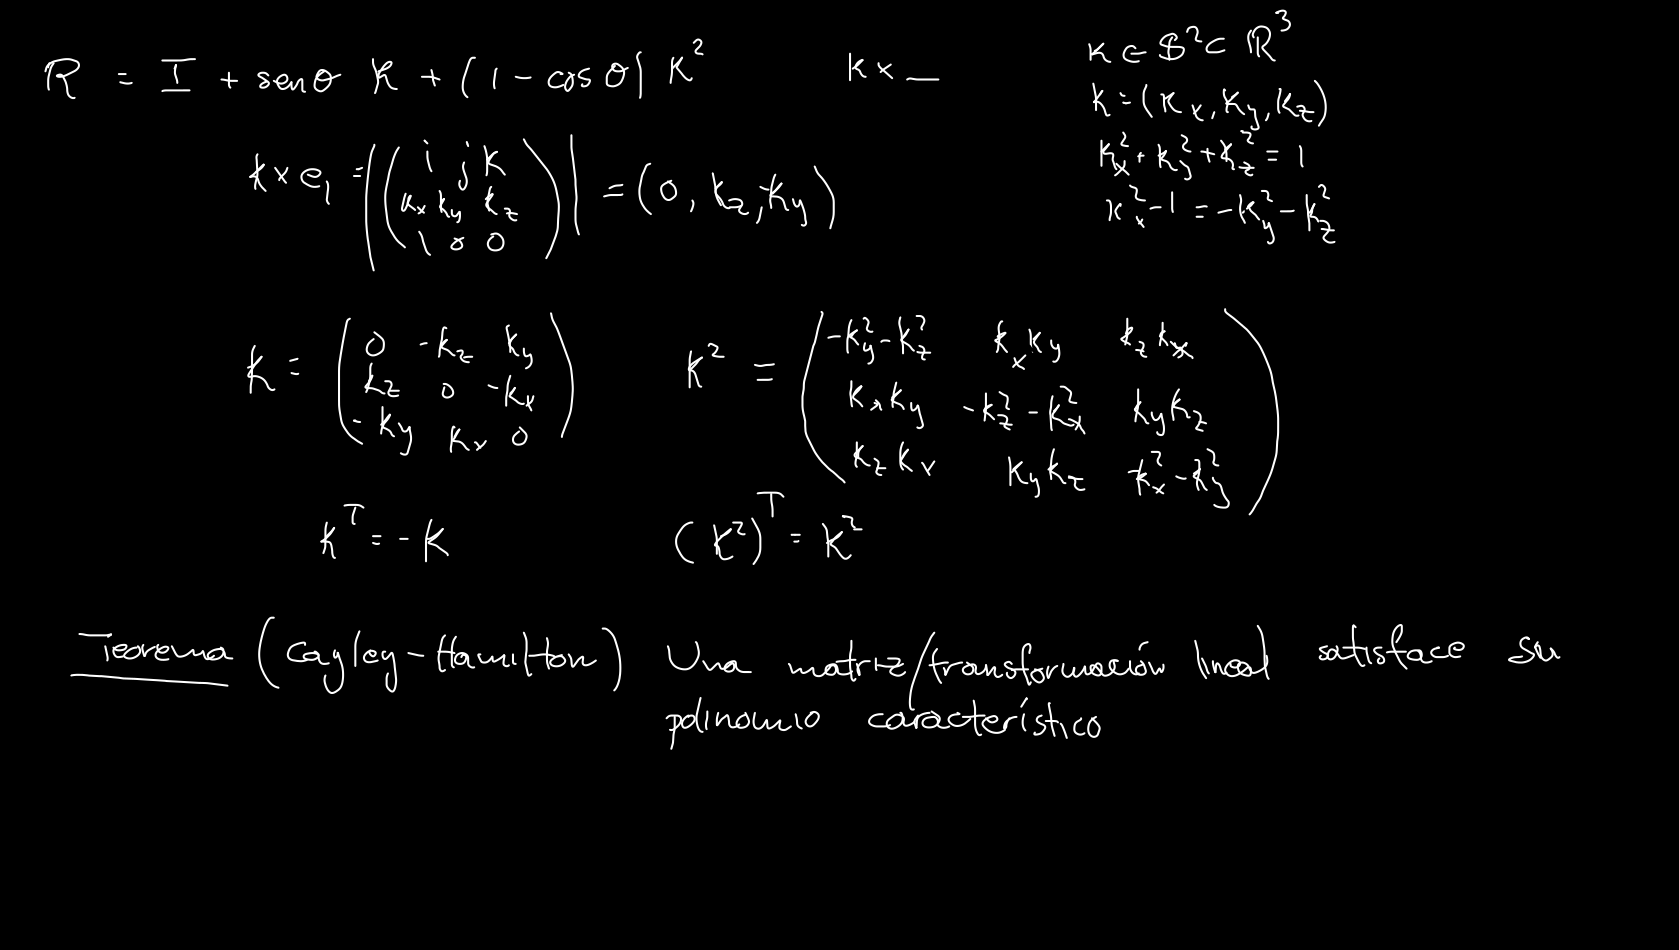 R = I + senθ K + (1 - cos θ) K²
k × _
k ∈ 𝕊² ⊂ ℝ³
k = (kx, ky, kz)
kx² + ky² + kz² = 1
kx² - 1 = -ky² - kz²
k × e₁ = |( i j k
kx ky kz
1 0 0 )| = (0, kz, -ky)
K = ( 0 -kz ky
kz 0 -kx
-ky kx 0 )
K² = ( -ky² - kz² kx ky kz kx
kx ky -kz² - kx² ky kz
kz kx ky kz -kx² - ky² )
K^T = -K
(K²)^T = K²
Teorema (Cayley-Hamilton) Una matriz/transformación lineal satisface su
polinomio característico